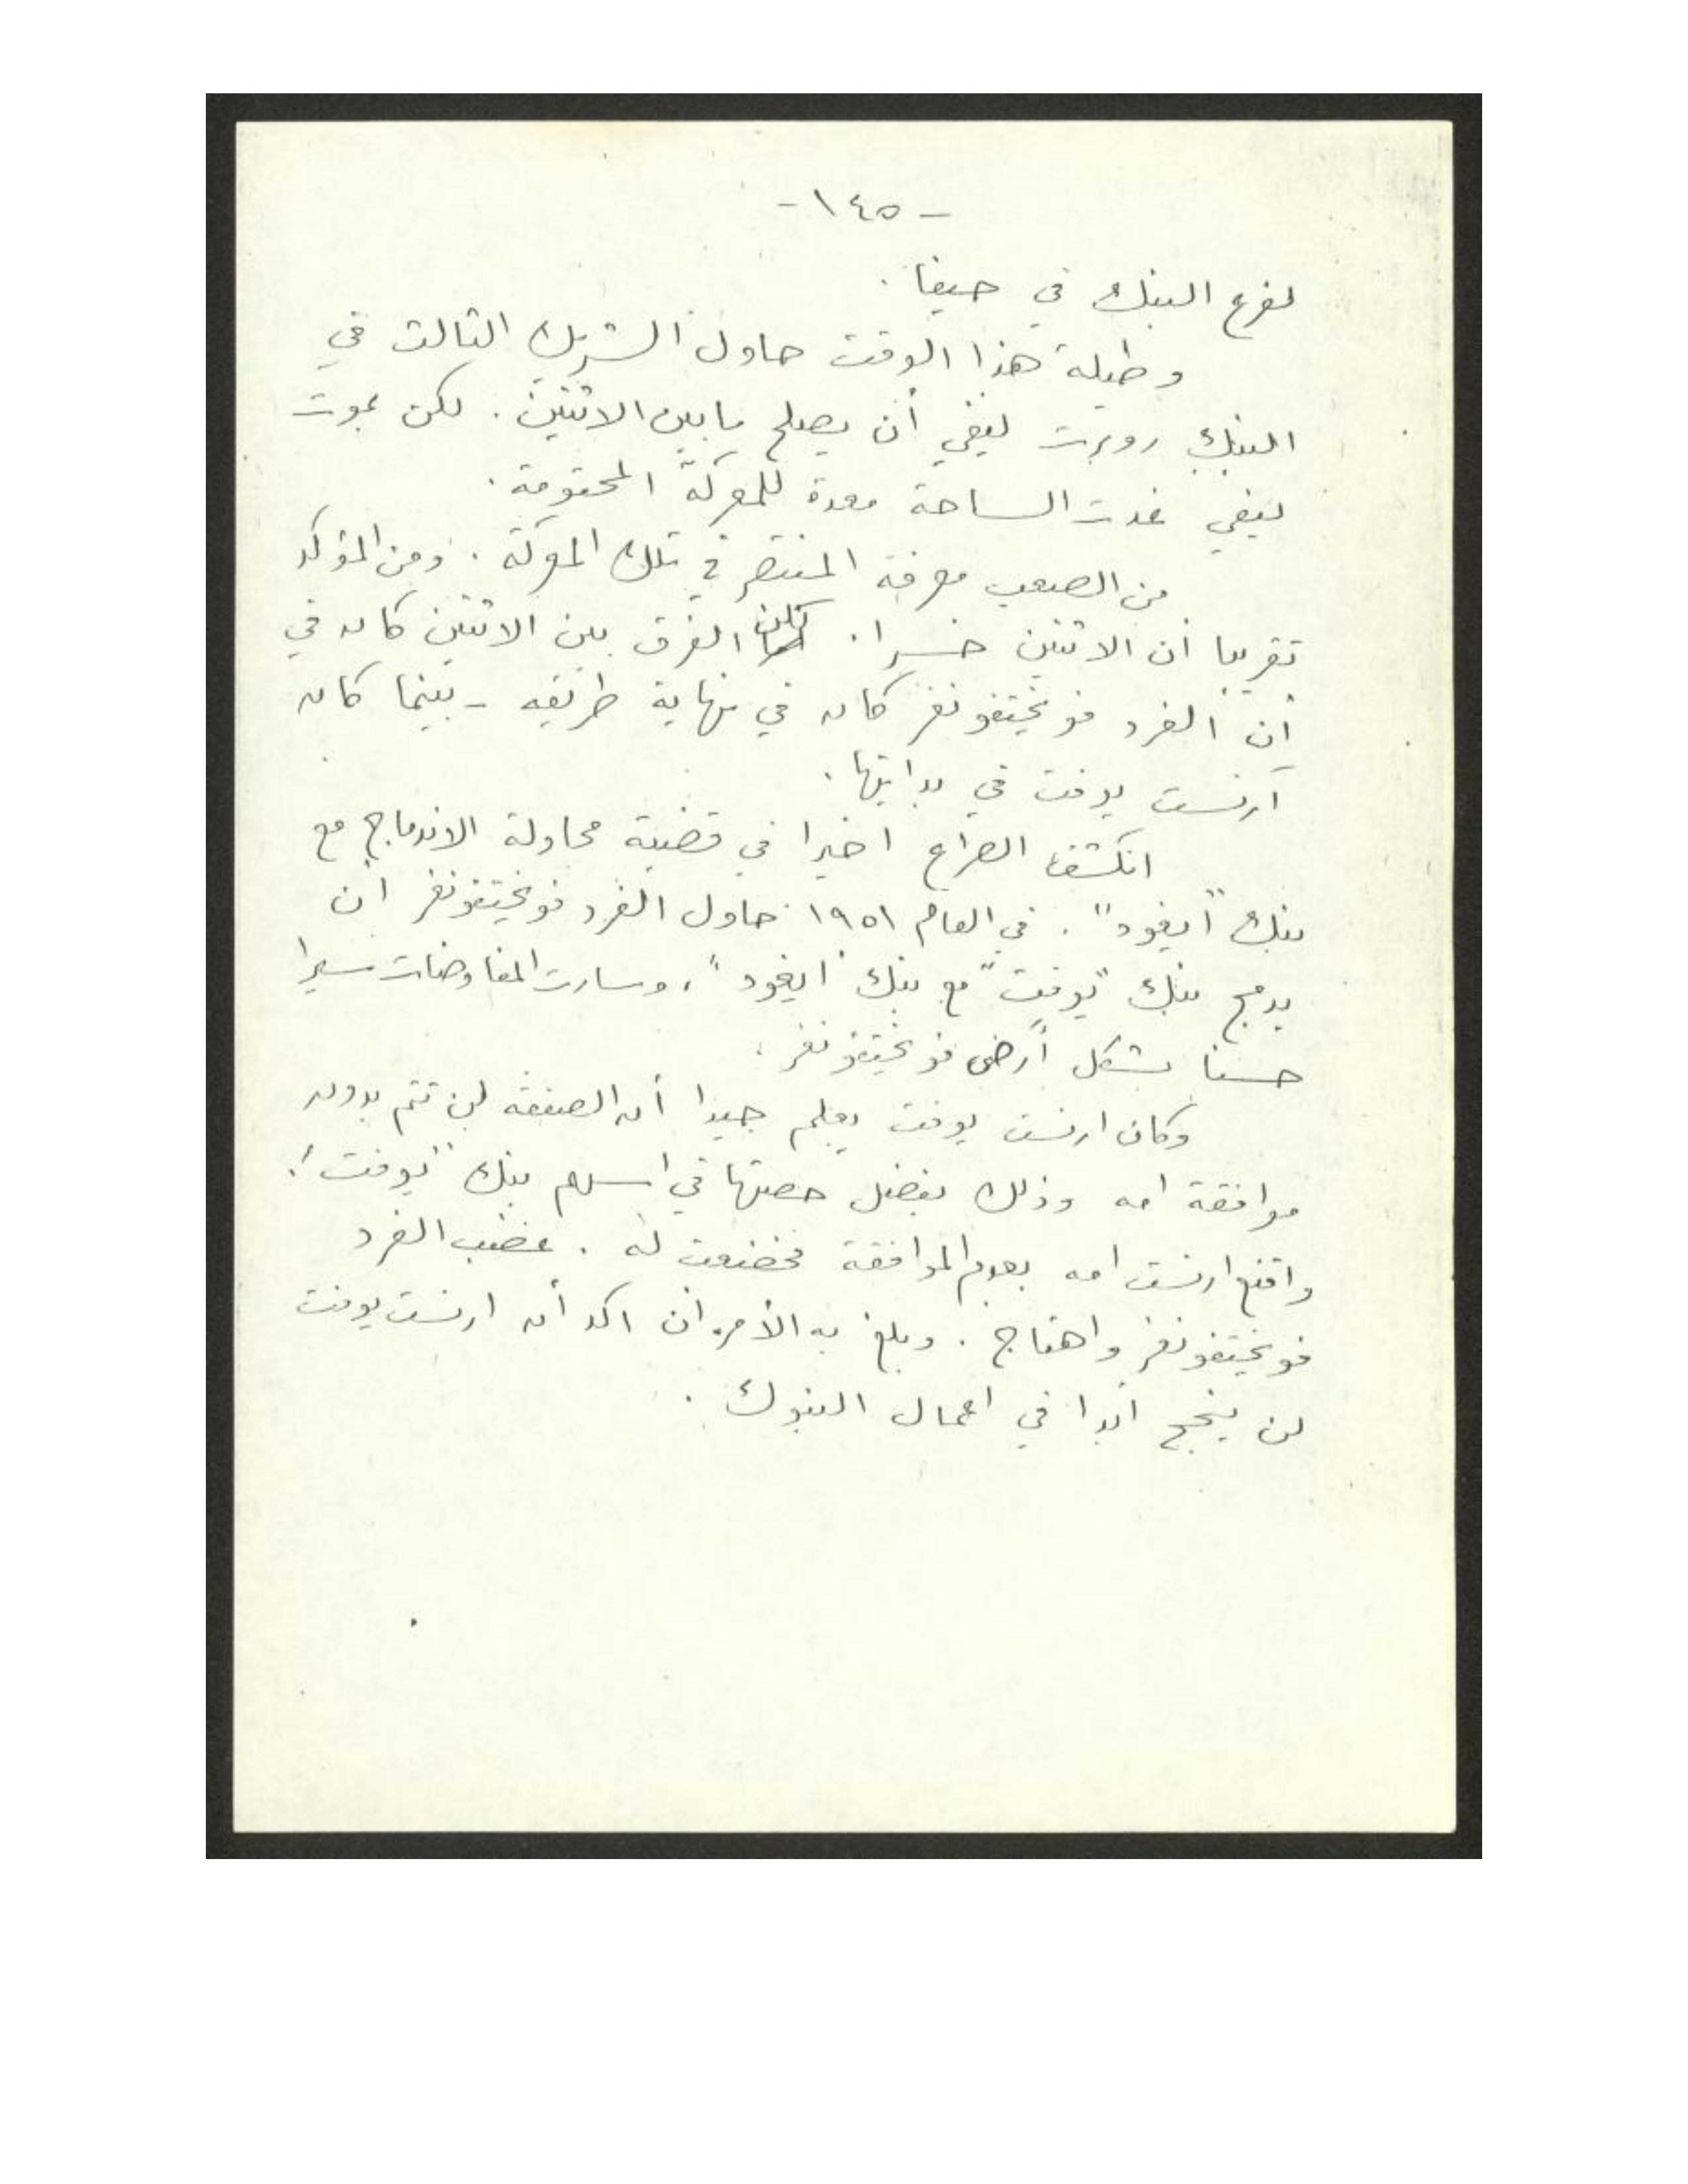 - ١٤٥ -
لفرع البنك في حيفا .
وطيلة هذا الوقت حاول الشريك الثالث في
البنك روبرت ليفي أن يصلح ما بين الاثنين . لكن بموت
ليفي غدت الساحة معدة للمعركة المحتومة .
من الصعب معرفة المنتصر في تلك المعركة . ومن المؤكد
تقريبا أن الاثنين خسرا . لكن الفرق بين الاثنين كان في
أن الفرد فويختفونغر كان في نهاية طريقه - بينما كان
ارنست يوفت في بدايتها .
انكشف الصراع اخيرا في قضية محاولة الاندماج مع
بنك "ايغود" . في العام ١٩٥١ حاول الفرد فويختفونغر ان
يدمج بنك "يوفت" مع بنك "ايغود" ، وسارت المفاوضات سيرا
حسنا بشكل أرضى فويختفونغر .
وكان ارنست يوفت يعلم جيدا أن الصفقة لن تتم بدون
موافقة امه وذلك بفضل حصتها في اسهم بنك "يوفت" .
واقنع ارنست امه بعدم الموافقة فخضعت له . غضب الفرد
فويختفونغر واهتاج . وبلغ به الأمر ان اكد أن ارنست يوفت
لن ينجح ابدا في اعمال البنوك .